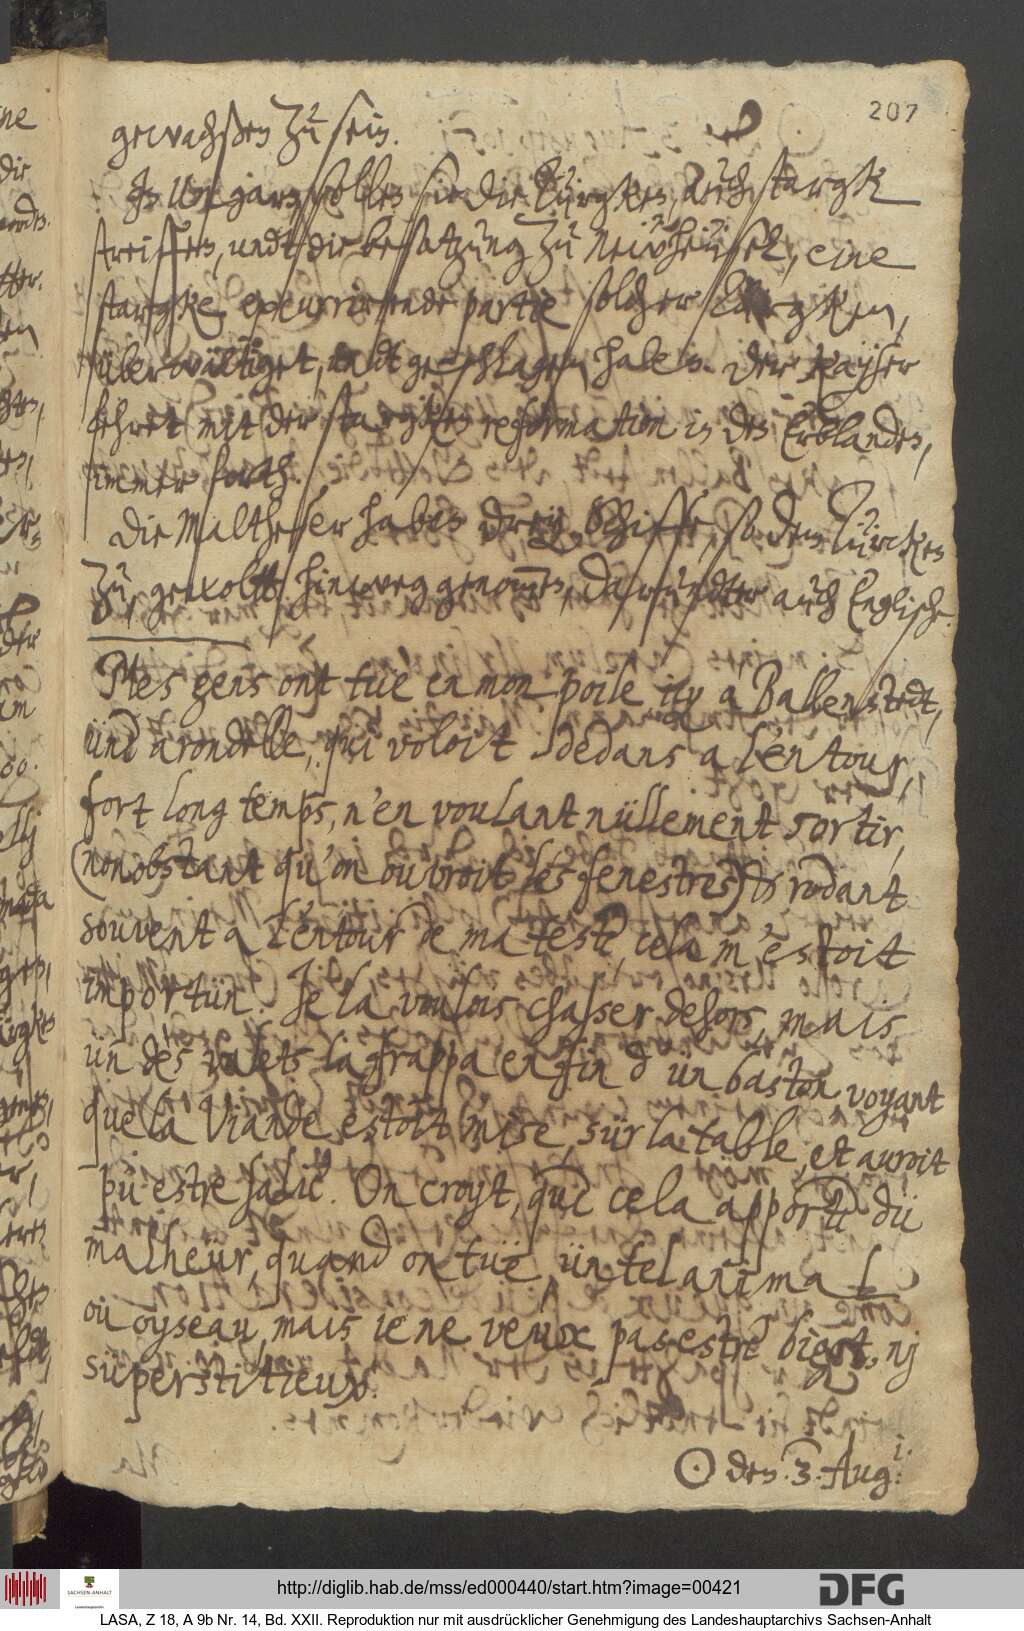 207
gewachßen zu sein.
In Ungarn sollen sie die Türgken, auch stargk
streiffen, undt die besatzung zu Neẅheüsel, eine
stargke excurrirende partie solcher Türgken,
überwältiget, undt geschlagen haben. Der Kayser
fehret mit der stargken reformation in den Erblanden,
immer forth.
Die Maltheser haben drey Schiffe, so den Türcken
zu gewollt, hinweg genommen, darundter auch Englische.
Mes gens ont tuè en mon poile icy a Ballenstedt,
ünd arondelle, qui voloit dedans a l'entour,
fort long temps, n'en voulant nüllement sortir,
(nonobstant qu'on ouvroit les fenestres) & rodant
souvent a l'entour de ma teste, cela m'estoit
importün. Je la voulois chasser dehors, mais
ün des valets la frappa en fin d'ün baston, voyant
que la Viande estoit mise sür la table, et auroit
pü estre salie. On croyt, que cela apporte dü
malheür, quand on tüe ün tel animal
ou oyseau, mais je ne veux pas estre bigot, nj
süperstitieux.
☉ den 3. Aug:
http://diglib.hab.de/mss/ed000440/start.htm?image=00421
DFG
SACHSEN-ANHALT
LASA, Z 18, A 9b Nr. 14, Bd. XXII. Reproduktion nur mit ausdrücklicher Genehmigung des Landeshauptarchivs Sachsen-Anhalt